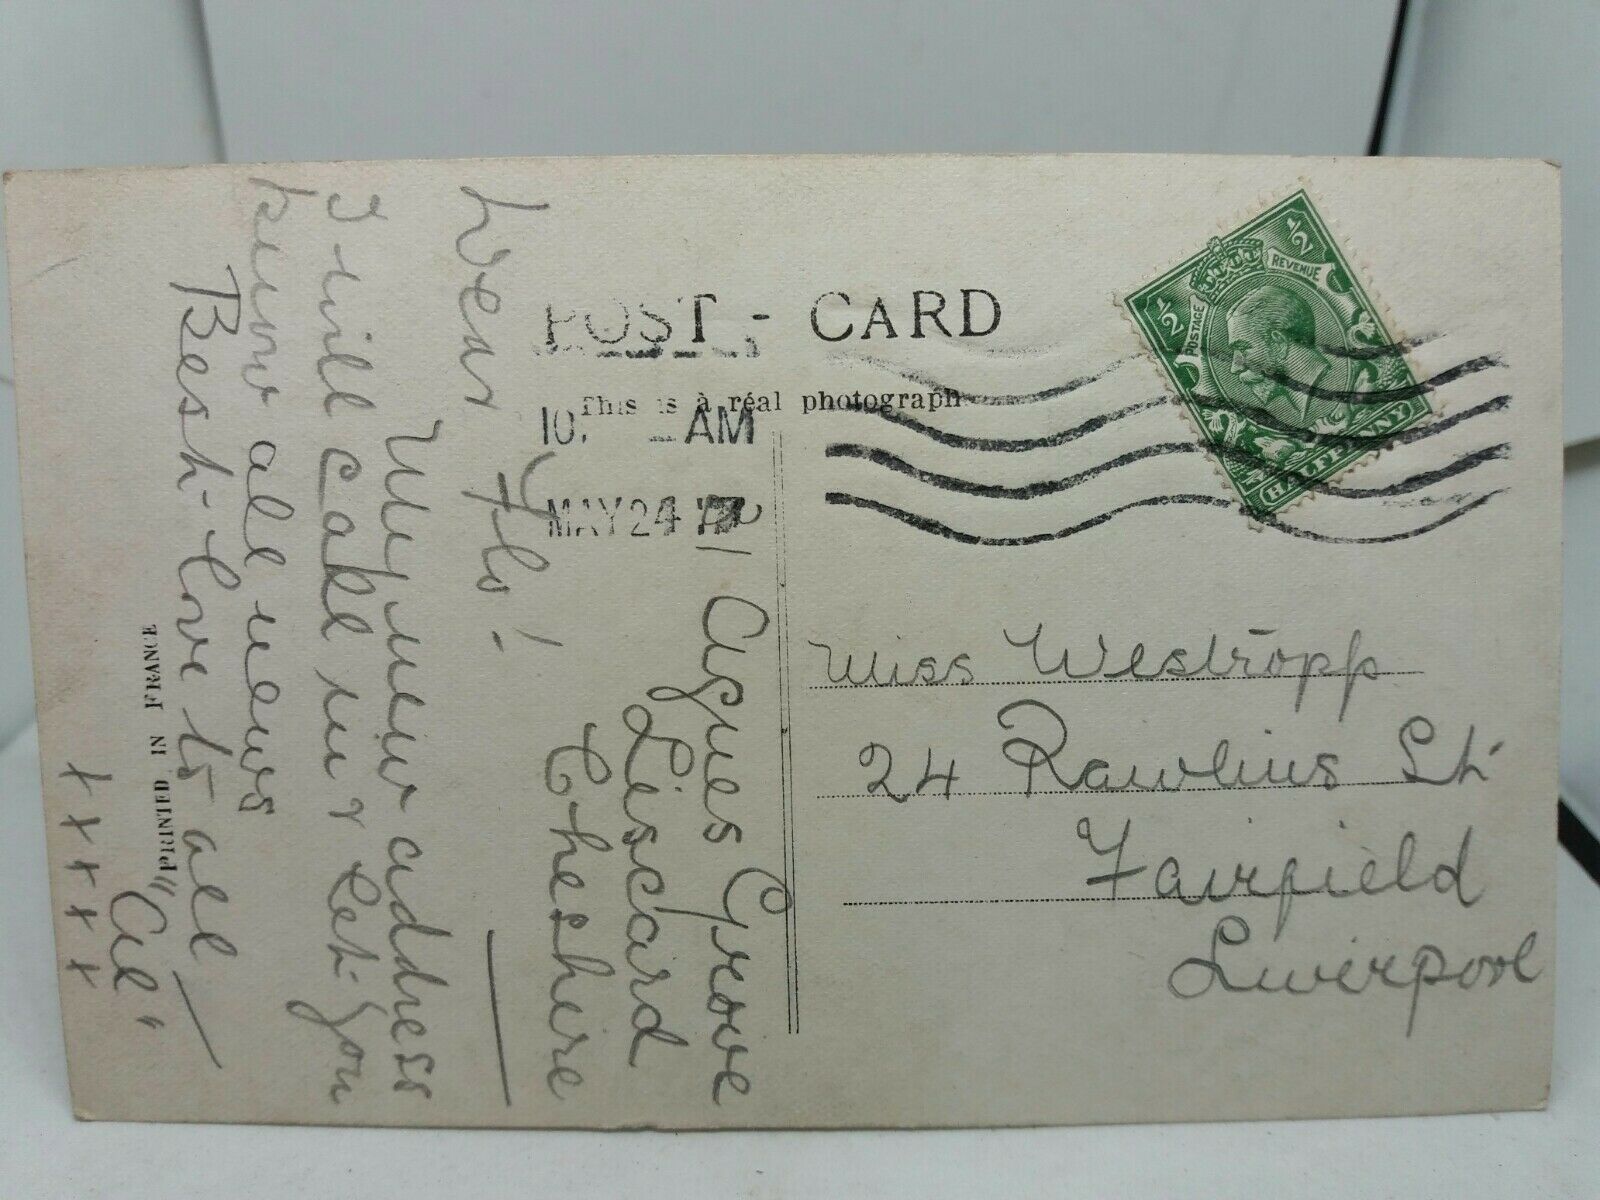 POST - CARD
This is a real photograph
10. AM
MAY 24 17
½ ½
POSTAGE REVENUE
HALFPENNY
Miss Westropp
24 Rawlins St
Fairfield
Liverpool
Agnes Grove
Liscard
Cheshire
Dear Flo! -
My new address
I will call in & let you
know all news
Best Love to all
"Cil"
x x x x x x
PRINTED IN FRANCE